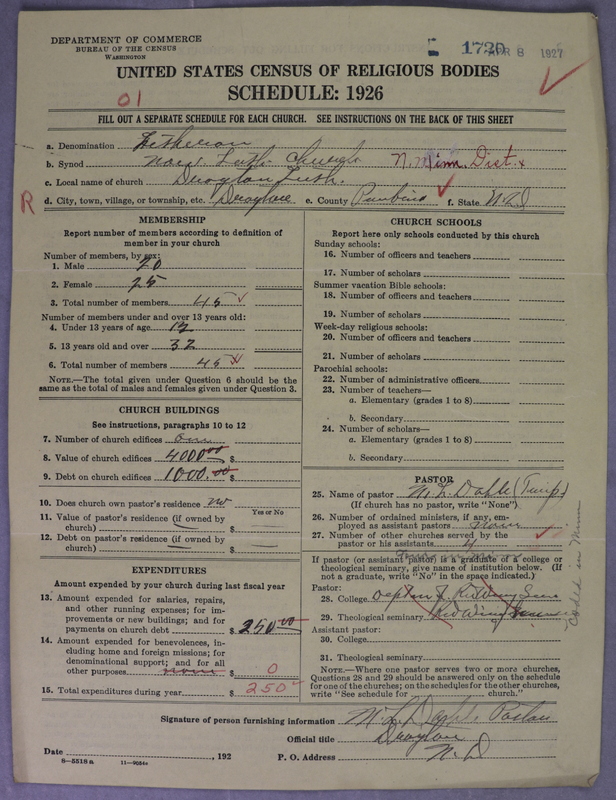 DEPARTMENT OF COMMERCE
BUREAU OF THE CENSUS
WASHINGTON
1720 APR 8 1927
UNITED STATES CENSUS OF RELIGIOUS BODIES
SCHEDULE: 1926
01
FILL OUT A SEPARATE SCHEDULE FOR EACH CHURCH. SEE INSTRUCTIONS ON THE BACK OF THIS SHEET
a. Denomination Lutheran
b. Synod Norw. Luth. Church N. Minn. Dist.
c. Local name of church Drayton Luth.
R d. City, town, village, or township, etc. Drayton e. County Pembina f. State N.D
MEMBERSHIP
Report number of members according to definition of
member in your church
Number of members, by sex:
1. Male 20
2. Female 25
3. Total number of members 45
Number of members under and over 13 years old:
4. Under 13 years of age
5. 13 years old and over 32
6. Total number of members 45
NOTE.—The total given under Question 6 should be the
same as the total of males and females given under Question 3.
CHURCH BUILDINGS
See instructions, paragraphs 10 to 12
7. Number of church edifices one
8. Value of church edifices $ 4000.00
9. Debt on church edifices $ 1000.00
10. Does church own pastor's residence no
Yes or No
11. Value of pastor's residence (if owned by
church) — $ —
12. Debt on pastor's residence (if owned by
church) — $ —
EXPENDITURES
Amount expended by your church during last fiscal year
13. Amount expended for salaries, repairs,
and other running expenses; for im-
provements or new buildings; and for
payments on church debt $ 250.00
14. Amount expended for benevolences, in-
cluding home and foreign missions; for
denominational support; and for all
other purposes none $ 0
15. Total expenditures during year $ 250
CHURCH SCHOOLS
Report here only schools conducted by this church
Sunday schools:
16. Number of officers and teachers
17. Number of scholars
Summer vacation Bible schools:
18. Number of officers and teachers
19. Number of scholars
Week-day religious schools:
20. Number of officers and teachers
21. Number of scholars
Parochial schools:
22. Number of administrative officers
23. Number of teachers—
a. Elementary (grades 1 to 8)
b. Secondary
24. Number of scholars—
a. Elementary (grades 1 to 8)
b. Secondary
PASTOR
25. Name of pastor (Temp)
(If church has no pastor, write "None")
26. Number of ordained ministers, if any, em-
ployed as assistant pastors none
27. Number of other churches served by the
pastor or his assistants 4
If pastor (or assistant pastor) is a graduate of a college or
theological seminary, give name of institution below. (If
not a graduate, write "No" in the space indicated.)
Pastor:
28. College Red Wing Sem
29. Theological seminary Red Wing Seminary
Assistant pastor:
30. College
31. Theological seminary
NOTE.—Where one pastor serves two or more churches,
Questions 28 and 29 should be answered only on the schedule
for one of the churches; on the schedules for the other churches,
write "See schedule for church."
Coded in Minn
Signature of person furnishing information Pastor
Official title Drayton
Date , 192 P. O. Address N.D
8—5518a 11—9054